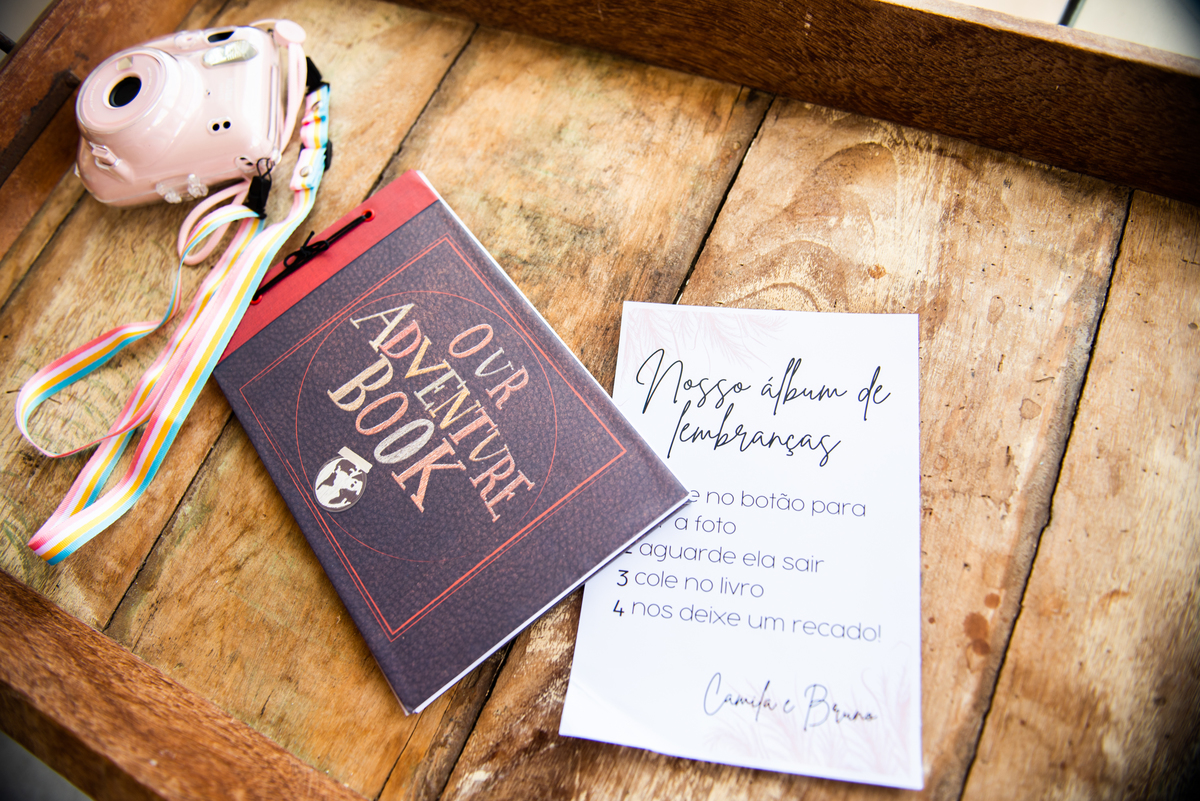 OUR
ADVENTURE
BOOK
Nosso álbum de
lembranças
no botão para
a foto
2 aguarde ela sair
3 cole no livro
4 nos deixe um recado!
Camila e Bruno